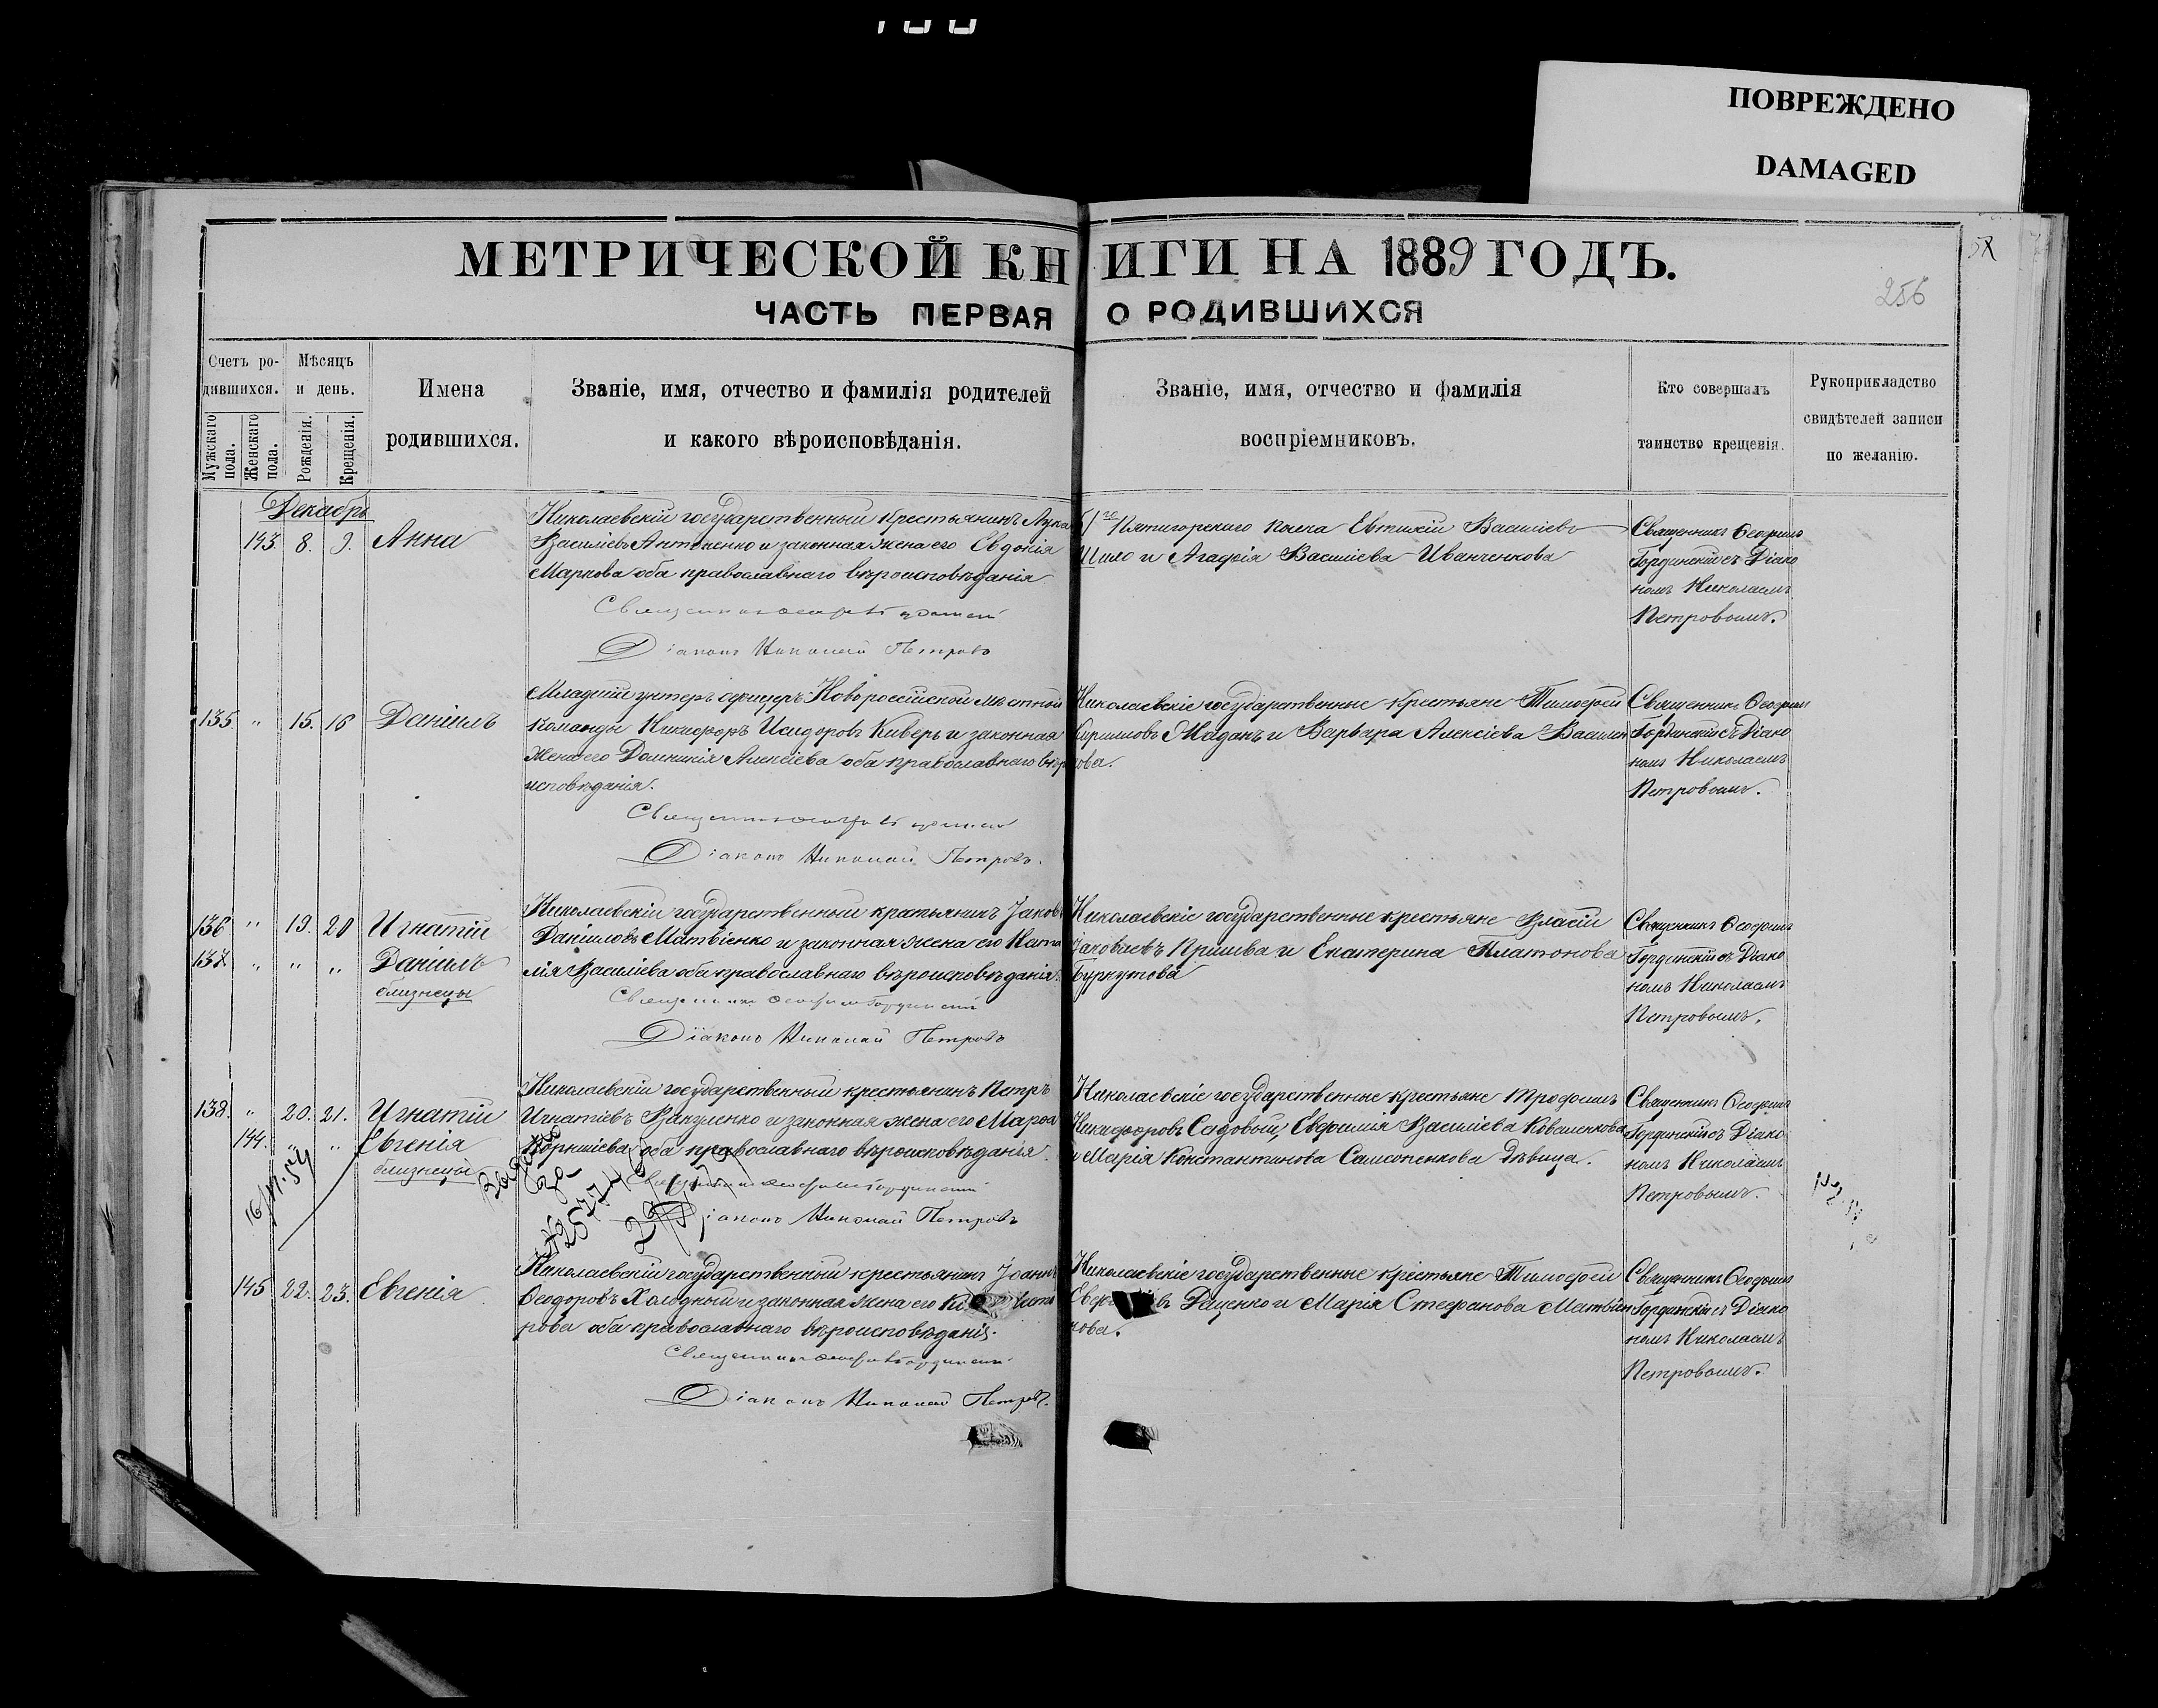 ПОВРЕЖДЕНО
DAMAGED
МЕТРИЧЕСКОЙ КНИГИ НА 1889 ГОДЪ.
ЧАСТЬ ПЕРВАЯ О РОДИВШИХСЯ
256
Счетъ ро-
дившихся.
Мужскаго пола.
Женскаго пола.
Мѣсяцъ
и день.
Рожденія.
Крещенія.
Имена
родившихся.
Званіе, имя, отчество и фамилія родителей
и какого вѣроисповѣданія.
Званіе, имя, отчество и фамилія
воспріемниковъ.
Кто совершалъ
таинство крещенія.
Рукоприкладство
свидѣтелей записи
по желанію.
Декабрь
143. 8. 9. Анна
Николаевскій государственный крестьянинъ Лука
Василіевъ Антоненко и законная жена его Евдокія
Маркова оба православнаго вѣроисповѣданія
Священникъ
Діаконъ Николай Петровъ
Пятигорскаго полка Евтихій Василіевъ
Шило и Агафія Василіева Иванченкова
Священникъ Ѳеофилъ
Гординскій съ Діако
номъ Николаемъ
Петровымъ.
135. " 15. 16 Даніилъ
Младшій унтеръ офицеръ Новороссійской мѣстной
команды Никифоръ Исидоровъ Киверь и законная
жена его Домникія Алексіева оба православнаго вѣро
исповѣданія.
Священникъ
Діаконъ Николай Петровъ.
Николаевскіе государственные крестьяне Тимофей
Кириловъ Маданъ и Варвара Алексіева
ова.
Священникъ Ѳеофилъ
Гординскій съ Діако
номъ Николаемъ
Петровымъ.
136 " 19. 20 Игнатій
137. " " " Даніилъ
близнецы
Николаевскій государственный крестьянинъ Іаковъ
Даніиловъ Матвіенко и законная жена его Ната
лія Василіева оба православнаго вѣроисповѣданія.
Священникъ Ѳеофилъ Гординскій
Діаконъ Николай Петровъ
Николаевскіе государственные крестьяне Власій
Іаковлевъ и Екатерина Платонова
Буркутова
Священникъ Ѳеофилъ
Гординскій съ Діако
номъ Николаемъ
Петровымъ.
138. " 20. 21. Игнатій
144. " " Евгенія
близнецы
Николаевскій государственный крестьянинъ Петръ
Игнатіевъ Вакуленко и законная жена его Марѳа
Корниліева оба православнаго вѣроисповѣданія.
Священникъ Ѳеофилъ Гординскій
Діаконъ Николай Петровъ
Николаевскіе государственные крестьяне Трофимъ
Никифоровъ Садовый, Евфимія Василіева Коваленкова
и Марія Константинова Самсоненкова дѣвица.
Священникъ Ѳеофилъ
Гординскій съ Діако
номъ Николаемъ
Петровымъ.
145 22. 23. Евгенія
Николаевскій государственный крестьянинъ Іоаннъ
Ѳеодоровъ Холодный и законная жена его
рова оба православнаго вѣроисповѣданія.
Священникъ Ѳеофилъ Гординскій
Діаконъ Николай Петровъ.
Николаевскіе государственные крестьяне Тимофей
Даценко и Марія Стефанова Матвіен
кова.
Священникъ Ѳеофилъ
Гординскій съ Діако
номъ Николаемъ
Петровымъ.